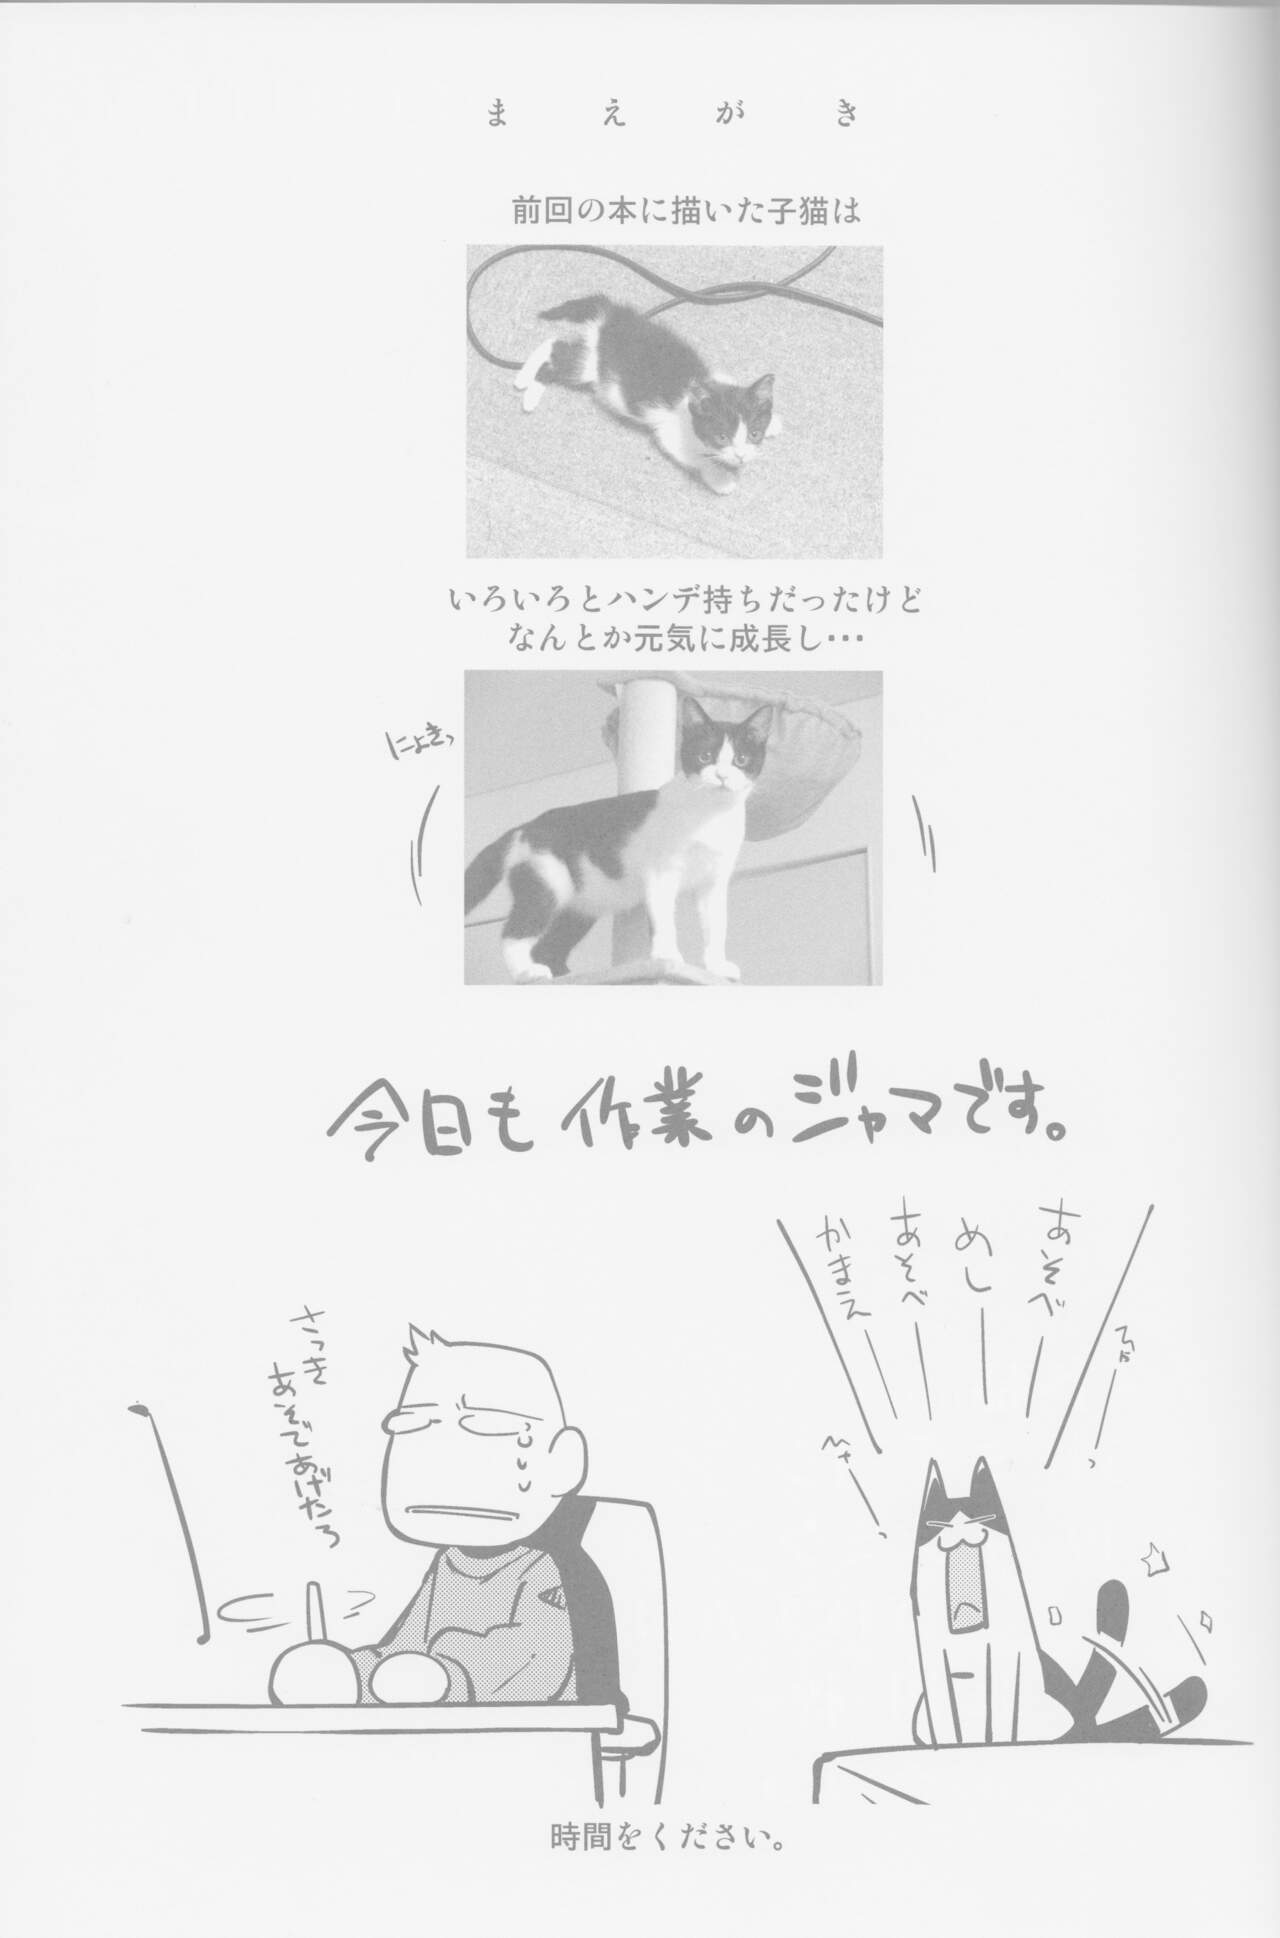 まえがき
前回の本に描いた子猫は
いろいろとハンデ持ちだったけど
なんとか元気に成長し・・・
にょきっ
今日も作業のジャマです。
あそべ
めし
あそべ
かまえ
さっき
あそであげたろ
時間をください。